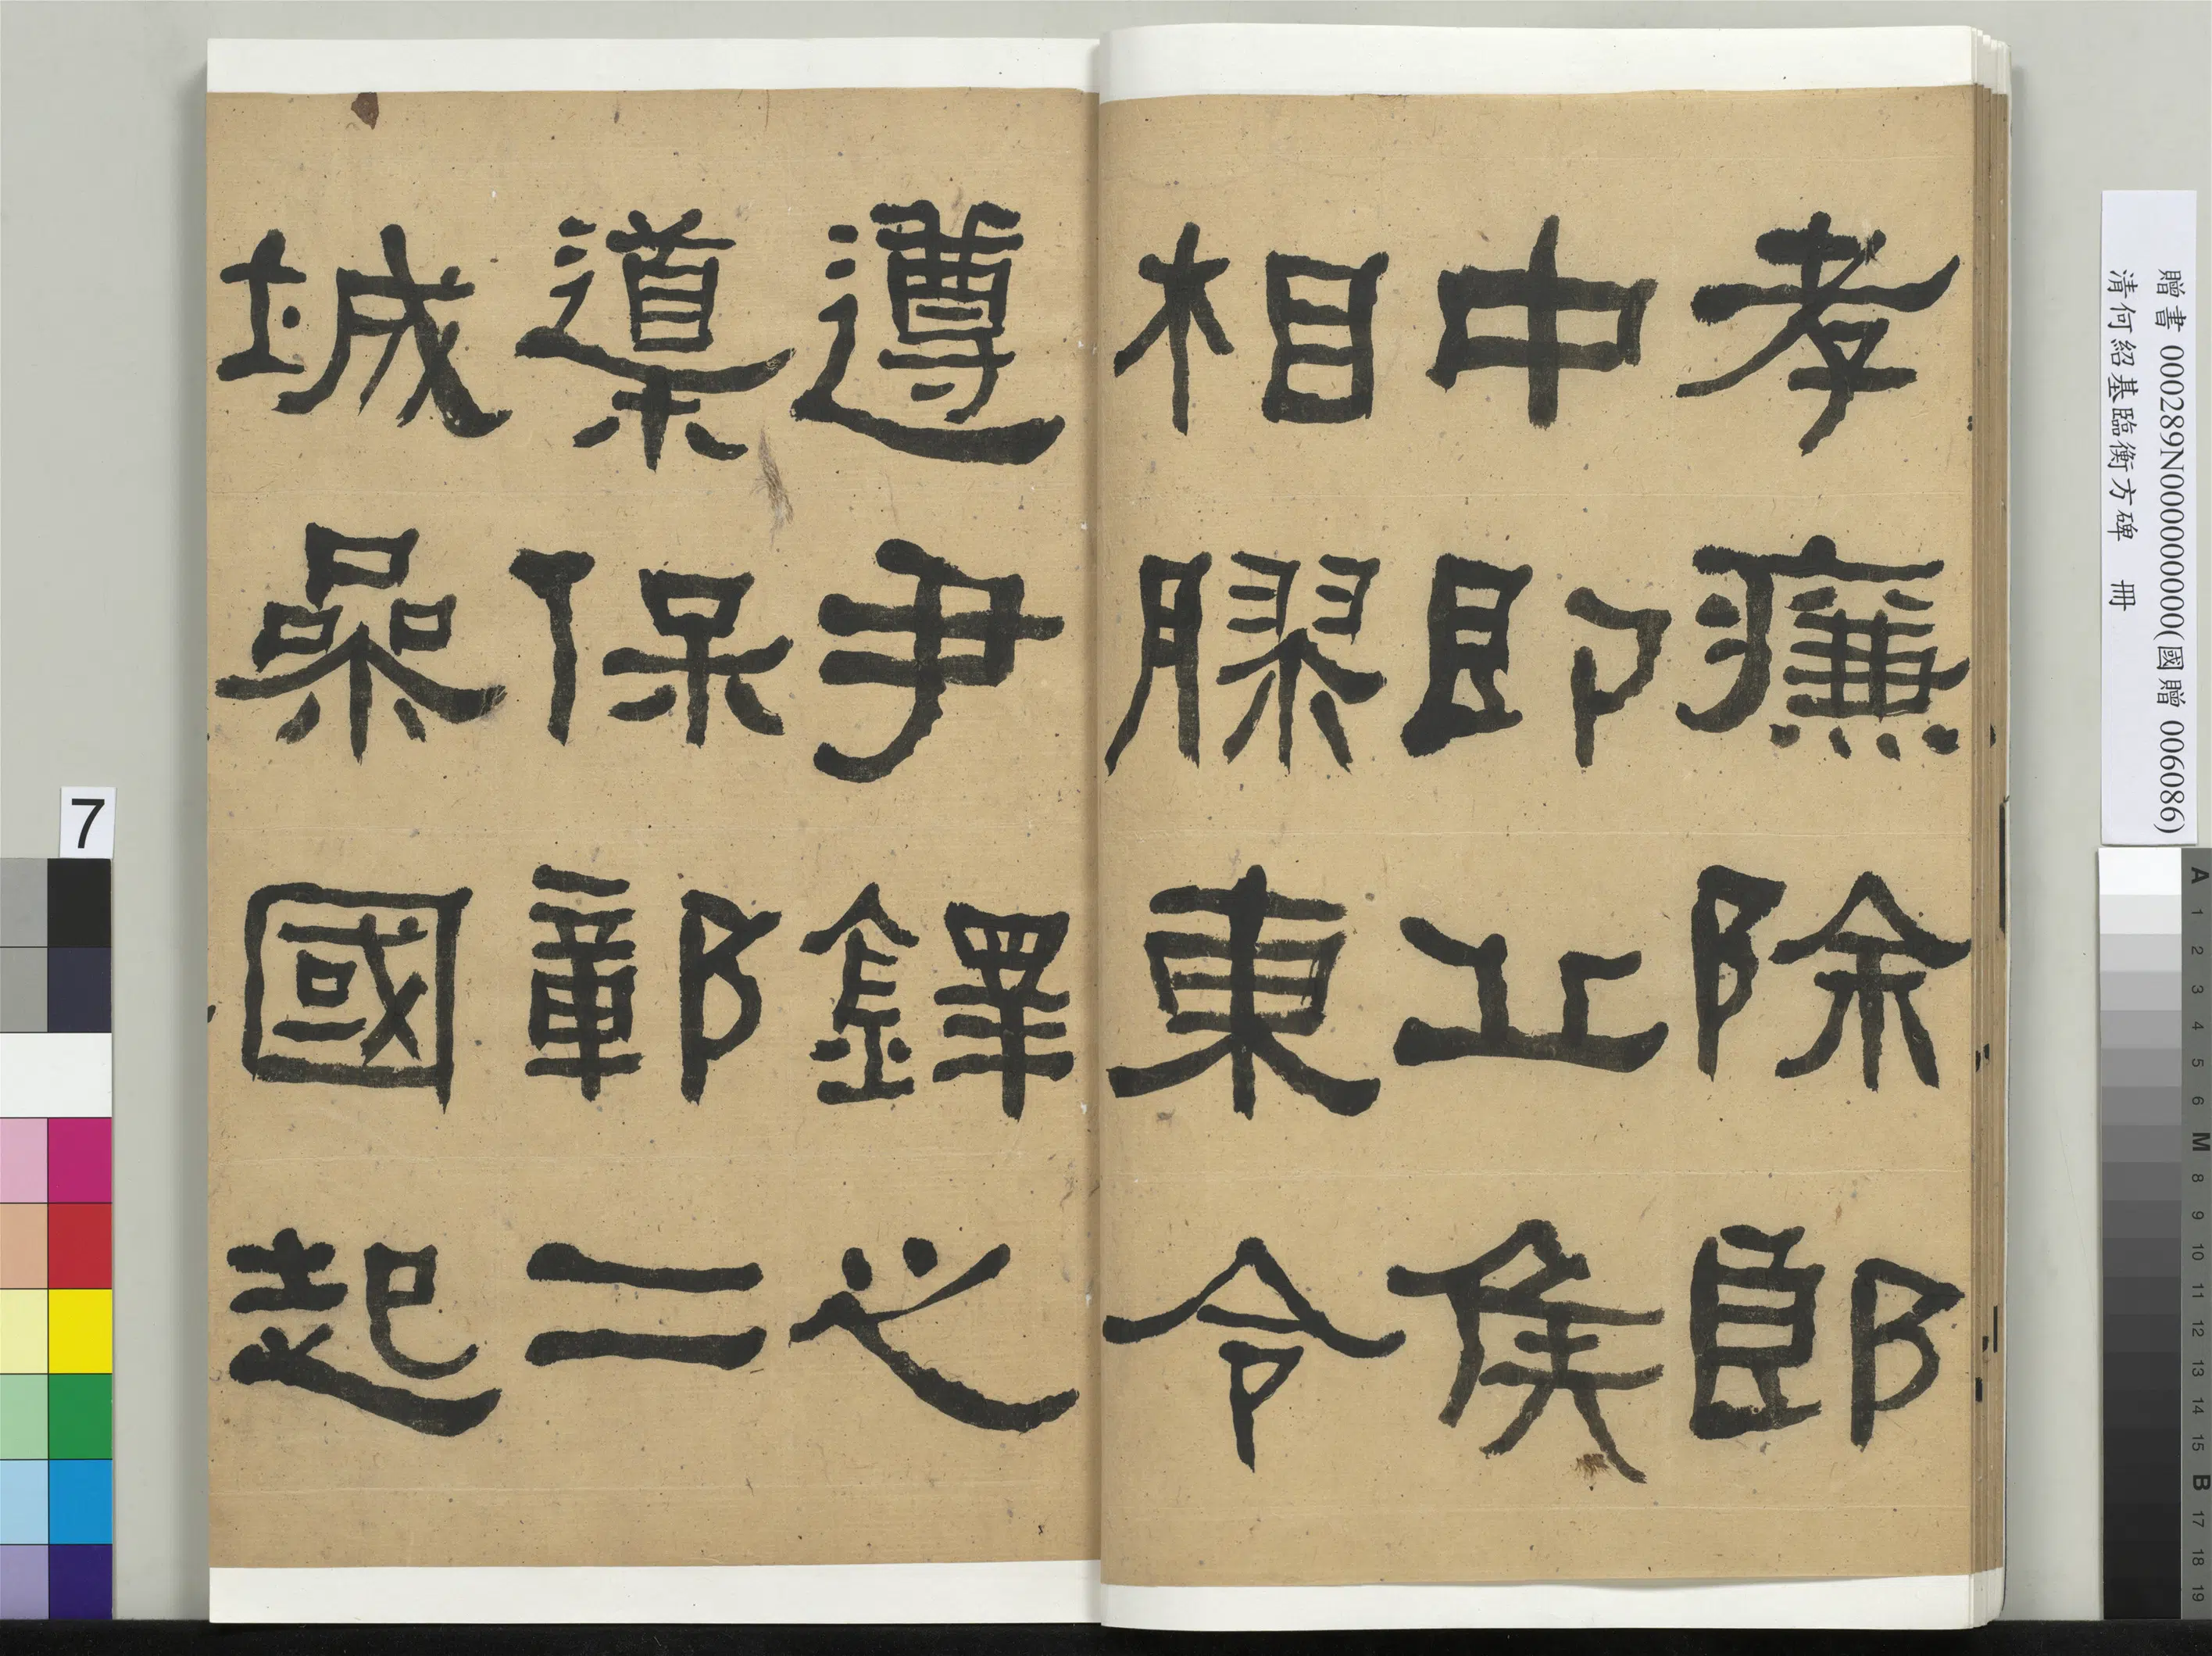 孝廉除郎
中即丘侯
相膠東令
遵尹鐸之
導保鄣二
城參國起
贈書 000289N000000000(國贈 006086)
清何紹基臨衡方碑 冊
7
A 1 2 3 4 5 6 M 8 9 10 11 12 13 14 15 B 17 18 19